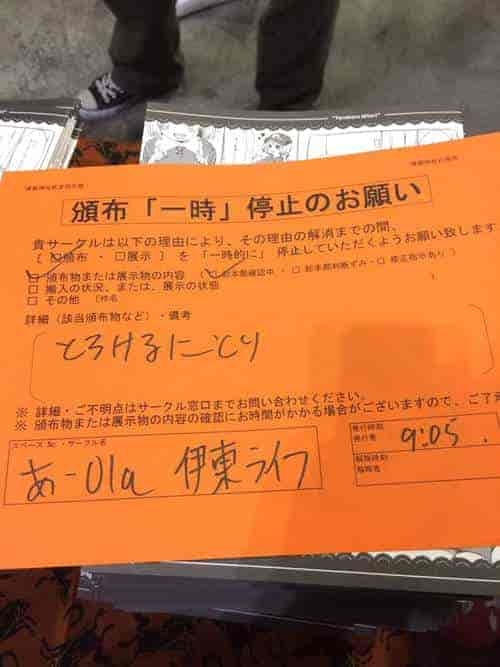 頒布「一時」停止のお願い
貴サークルは以下の理由により、その理由の解消までの間、
[ □頒布 ・□展示 ] を 「一時的に」 停止していただくようお願い致します
□ 頒布物または展示物の内容 (□ 総本部確認中 ・ □ 総本部判断ずみ・□ 修正指示あり )
□ 搬入の状況、または、展示の状態
□ その他 (件名 )
詳細（該当頒布物など）・備考
とろけるにとり
※ 詳細・ご不明点はサークル窓口までお問い合わせください。
※ 頒布物または展示物の内容の確認にお時間がかかる場合がございますので、ご了
スペース No.・サークル名
あ-01a 伊東ライフ
発行時刻
発行者
9:05
解除時刻
解除者